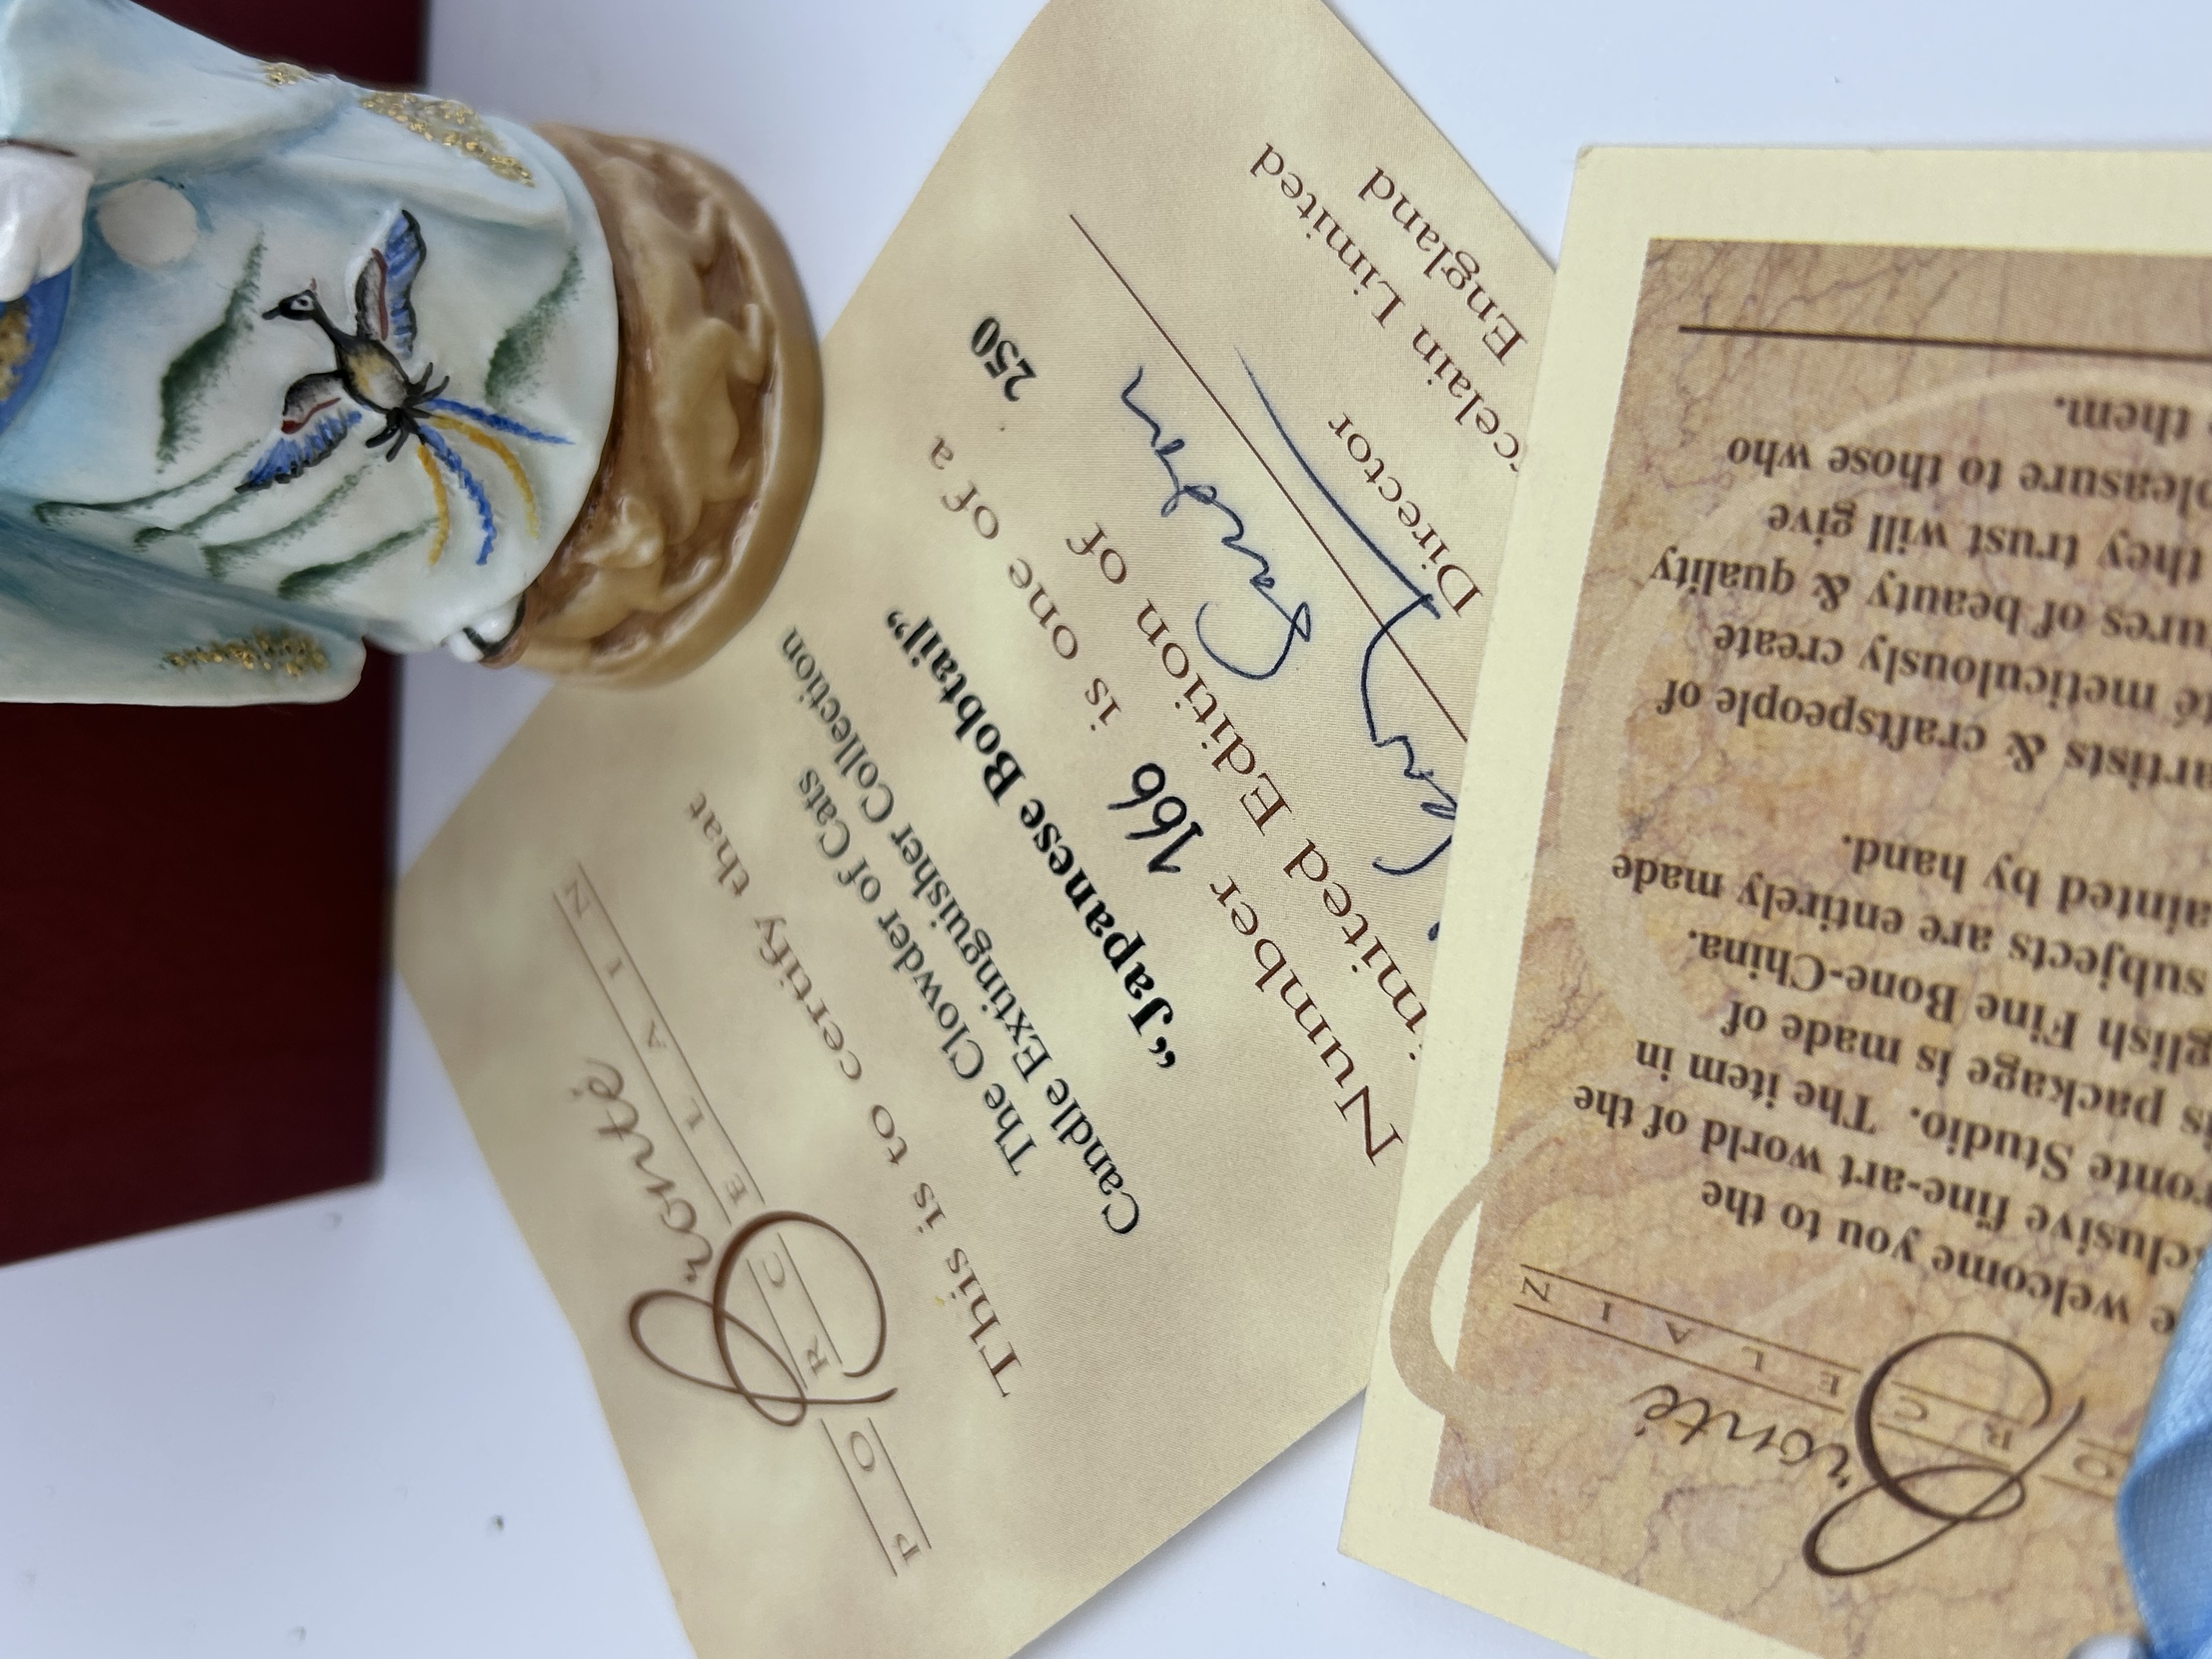 Bronté
PORCELAIN
This is to certify that
The Clowder of Cats
Candle Extinguisher Collection
“Japanese Bobtail”
Number 166 is one of a
imited Edition of 250
Director
rcelain Limited
England
Bronté
ORCELAIN
e welcome you to the
clusive fine-art world of the
ronte Studio. The item in
is package is made of
glish Fine Bone-China.
subjects are entirely made
ainted by hand.
artists & craftspeople of
é meticulously create
ures of beauty & quality
they trust will give
pleasure to those who
e them.